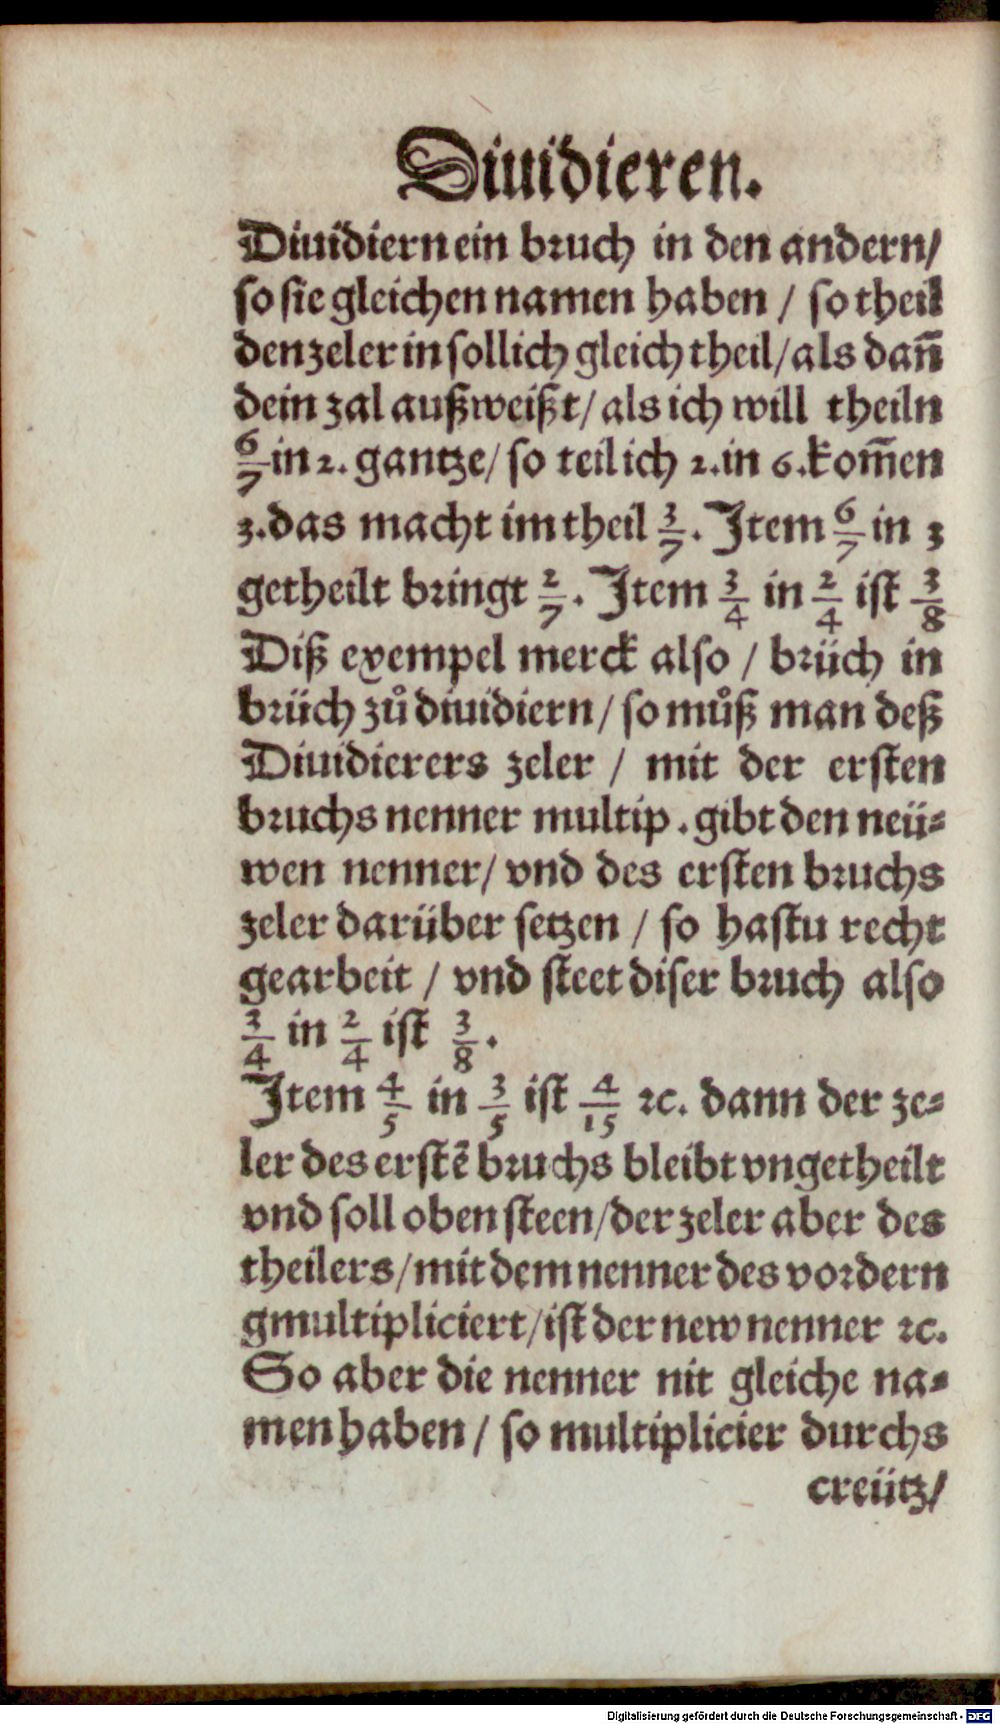 Diuidieren.
Diuidiern ein bruch in den andern/
so sie gleichen namen haben / so theil
den zeler in sollich gleich theil/als dañ
dein zal außweißt/als ich will theiln
6/7 in 2. gantze/ so teil ich 2.in 6.kom̃en
3.das macht im theil 3/7. Item 6/7 in 3
getheilt bringt 2/7. Item 3/4 in 2/4 ist 3/8
Diß exempel merck also / brüch in
brüch zů diuidiern/ so můß man deß
Diuidierers zeler / mit der ersten
bruchs nenner multip. gibt den neü⸗
wen nenner/ vnd des ersten bruchs
zeler darüber setzen / so hastu recht
gearbeit / vnd steet diser bruch also
3/4 in 2/4 ist 3/8.
Item 4/5 in 3/5 ist 4/15 ꝛc. dann der ze⸗
ler des erstẽ bruchs bleibt vngetheilt
vnd soll oben steen/der zeler aber des
theilers/mit dem nenner des vordern
gmultipliciert/ist der new nenner ꝛc.
So aber die nenner nit gleiche na⸗
men haben / so multiplicier durchs
creütz/
Digitalisierung gefördert durch die Deutsche Forschungsgemeinschaft - DFG